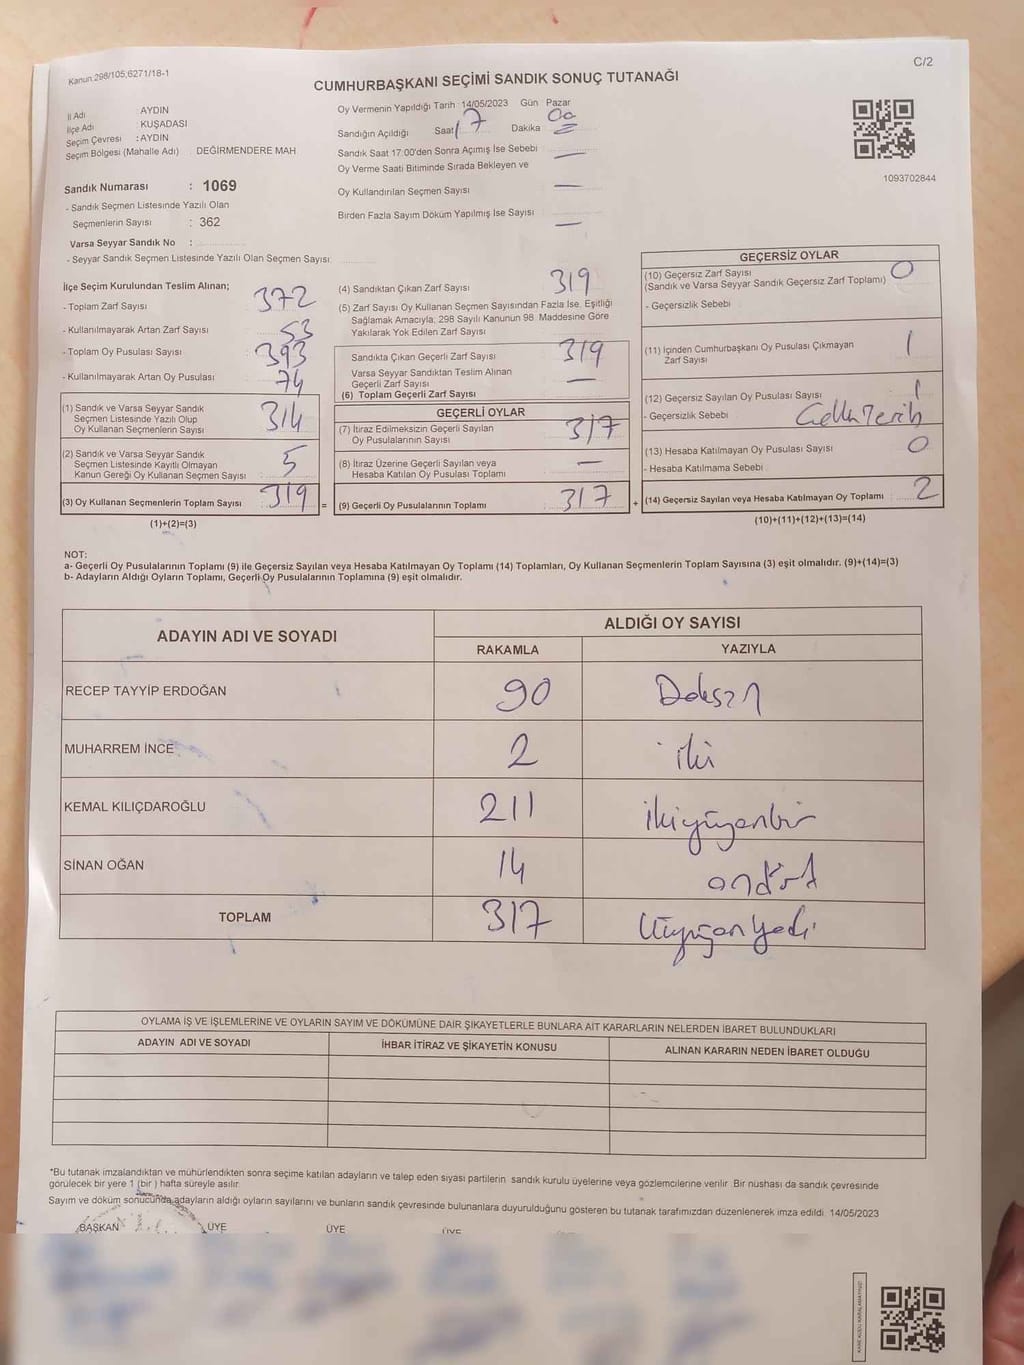 Kanun 298/105;6271/18-1
C/2
CUMHURBAŞKANI SEÇİMİ SANDIK SONUÇ TUTANAĞI
İl Adı : AYDIN
İlçe Adı : KUŞADASI
Seçim Çevresi : AYDIN
Seçim Bölgesi (Mahalle Adı) : DEĞİRMENDERE MAH
Sandık Numarası : 1069
- Sandık Seçmen Listesinde Yazılı Olan
Seçmenlerin Sayısı : 362
Varsa Seyyar Sandık No :
- Seyyar Sandık Seçmen Listesinde Yazılı Olan Seçmen Sayısı:
Oy Vermenin Yapıldığı Tarih : 14/05/2023 Gün Pazar
Sandığın Açıldığı Saat 17 Dakika 00
Sandık Saat 17:00'den Sonra Açımış İse Sebebi —
Oy Verme Saati Bitiminde Sırada Bekleyen ve
Oy Kullandırılan Seçmen Sayısı —
Birden Fazla Sayım Döküm Yapılmış İse Sayısı —
1093702844
İlçe Seçim Kurulundan Teslim Alınan;
- Toplam Zarf Sayısı 372
- Kullanılmayarak Artan Zarf Sayısı 53
- Toplam Oy Pusulası Sayısı 393
- Kullanılmayarak Artan Oy Pusulası 74
(1) Sandık ve Varsa Seyyar Sandık
Seçmen Listesinde Yazılı Olup
Oy Kullanan Seçmenlerin Sayısı 314
(2) Sandık ve Varsa Seyyar Sandık
Seçmen Listesinde Kayıtlı Olmayan
Kanun Gereği Oy Kullanan Seçmen Sayısı 5
(3) Oy Kullanan Seçmenlerin Toplam Sayısı 319 =
(1)+(2)=(3)
(4) Sandıktan Çıkan Zarf Sayısı 319
(5) Zarf Sayısı Oy Kullanan Seçmen Sayısından Fazla İse, Eşitliği
Sağlamak Amacıyla; 298 Sayılı Kanunun 98. Maddesine Göre
Yakılarak Yok Edilen Zarf Sayısı
Sandıkta Çıkan Geçerli Zarf Sayısı 319
Varsa Seyyar Sandıktan Teslim Alınan
Geçerli Zarf Sayısı —
(6) Toplam Geçerli Zarf Sayısı
GEÇERLİ OYLAR
(7) İtiraz Edilmeksizin Geçerli Sayılan
Oy Pusulalarının Sayısı 317
(8) İtiraz Üzerine Geçerli Sayılan veya
Hesaba Katılan Oy Pusulası Toplamı —
(9) Geçerli Oy Pusulalarının Toplamı 317 +
GEÇERSİZ OYLAR
(10) Geçersiz Zarf Sayısı 0
(Sandık ve Varsa Seyyar Sandık Geçersiz Zarf Toplamı)
- Geçersizlik Sebebi
(11) İçinden Cumhurbaşkanı Oy Pusulası Çıkmayan
Zarf Sayısı 1
(12) Geçersiz Sayılan Oy Pusulası Sayısı 1
- Geçersizlik Sebebi
(13) Hesaba Katılmayan Oy Pusulası Sayısı 0
- Hesaba Katılmama Sebebi
(14) Geçersiz Sayılan veya Hesaba Katılmayan Oy Toplamı 2
(10)+(11)+(12)+(13)=(14)
NOT:
a- Geçerli Oy Pusulalarının Toplamı (9) ile Geçersiz Sayılan veya Hesaba Katılmayan Oy Toplamı (14) Toplamları, Oy Kullanan Seçmenlerin Toplam Sayısına (3) eşit olmalıdır. (9)+(14)=(3)
b- Adayların Aldığı Oyların Toplamı, Geçerli Oy Pusulalarının Toplamına (9) eşit olmalıdır.
ADAYIN ADI VE SOYADI
ALDIĞI OY SAYISI
RAKAMLA YAZIYLA
RECEP TAYYİP ERDOĞAN 90 Doksan
MUHARREM İNCE 2 iki
KEMAL KILIÇDAROĞLU 211 ikiyüzonbir
SİNAN OĞAN 14 ondört
TOPLAM 317 Üçyüzonyedi
OYLAMA İŞ VE İŞLEMLERİNE VE OYLARIN SAYIM VE DÖKÜMÜNE DAİR ŞİKAYETLERLE BUNLARA AİT KARARLARIN NELERDEN İBARET BULUNDUKLARI
ADAYIN ADI VE SOYADI İHBAR İTİRAZ VE ŞİKAYETİN KONUSU ALINAN KARARIN NEDEN İBARET OLDUĞU
*Bu tutanak imzalandıktan ve mühürlendikten sonra seçime katılan adayların ve talep eden siyasi partilerin sandık kurulu üyelerine veya gözlemcilerine verilir. Bir nüshası da sandık çevresinde
görülecek bir yere 1 (bir) hafta süreyle asılır.
Sayım ve döküm sonucunda adayların aldığı oyların sayılarını ve bunların sandık çevresinde bulunanlara duyurulduğunu gösteren bu tutanak tarafımızdan düzenlenerek imza edildi. 14/05/2023
BAŞKAN ÜYE ÜYE ÜYE